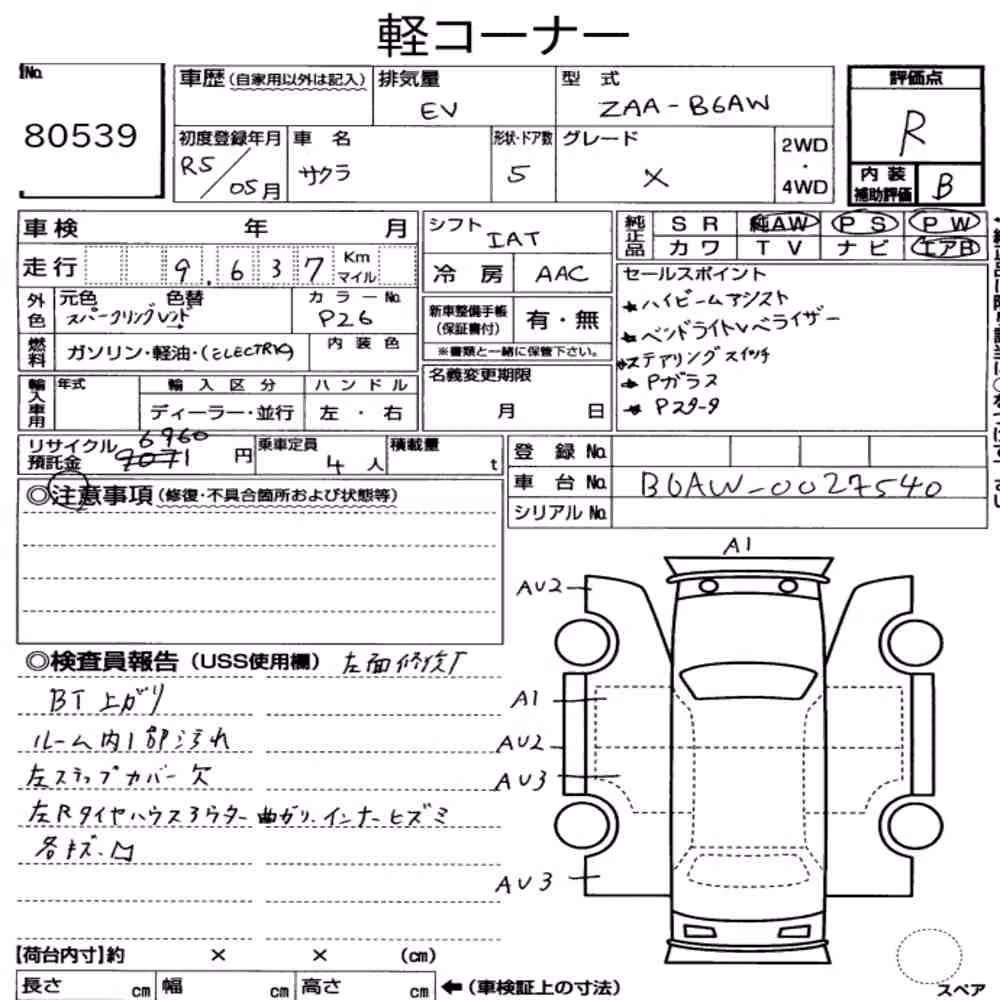 軽コーナー
No.
80539
車歴(自家用以外は記入)
排気量
EV
型 式
ZAA-B6AW
評価点
R
初度登録年月
R5/05月
車 名
サクラ
形状・ドア数
5
グレード
X
2WD
・
4WD
内 装
補助評価
B
車検 年 月
走行 9.637 Km
マイル
シフト
IAT
冷 房 AAC
純正品
SR 純AW PS PW
カワ TV ナビ エアB
外色
元色 色替
カラーNo.
P26
燃料
ガソリン・軽油・(ELECTRIC)
内 装 色
新車整備手帳
(保証書付)
有・無
※書類と一緒に保管下さい。
セールスポイント
★ハイビームアシスト
★ステアリングスイッチ
★Pガラス
輸入車用
年式
輸 入 区 分
ディーラー・並行
ハ ン ド ル
左 ・ 右
名義変更期限
月 日
リサイクル
預託金
6960
9071 円
乗車定員
4 人
積載量
t
登 録 No.
車 台 No. B6AW-0027540
シリアル No.
◎注意事項(修復・不具合箇所および状態等)
◎検査員報告(USS使用欄) 左面修復歴
BT上がり
ルーム内1部汚れ
左ステップカバー欠
左Rタイヤハウスアウター曲がり、インナーヒズミ
各キズ、凹
A1
AU2
A1
AU2
AU3
AU3
【荷台内寸】約 × × (cm)
長さ cm 幅 cm 高さ cm ←(車検証上の寸法)
スペア